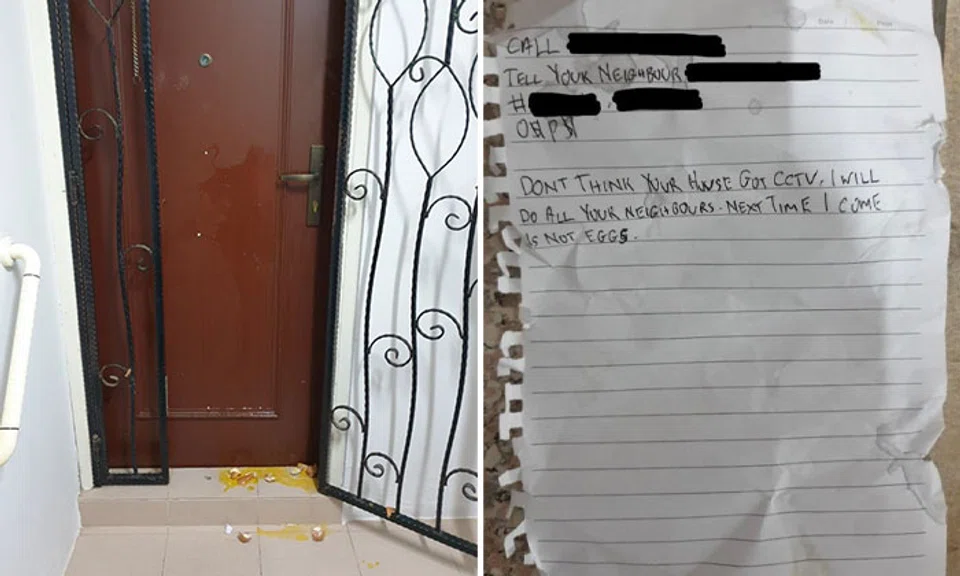 CALL
TELL YOUR NEIGHBOUR
#
O$P$
DONT THINK YOUR HOUSE GOT CCTV, I WILL
DO ALL YOUR NEIGHBOURS. NEXT TIME I COME
IS NOT EGGS.